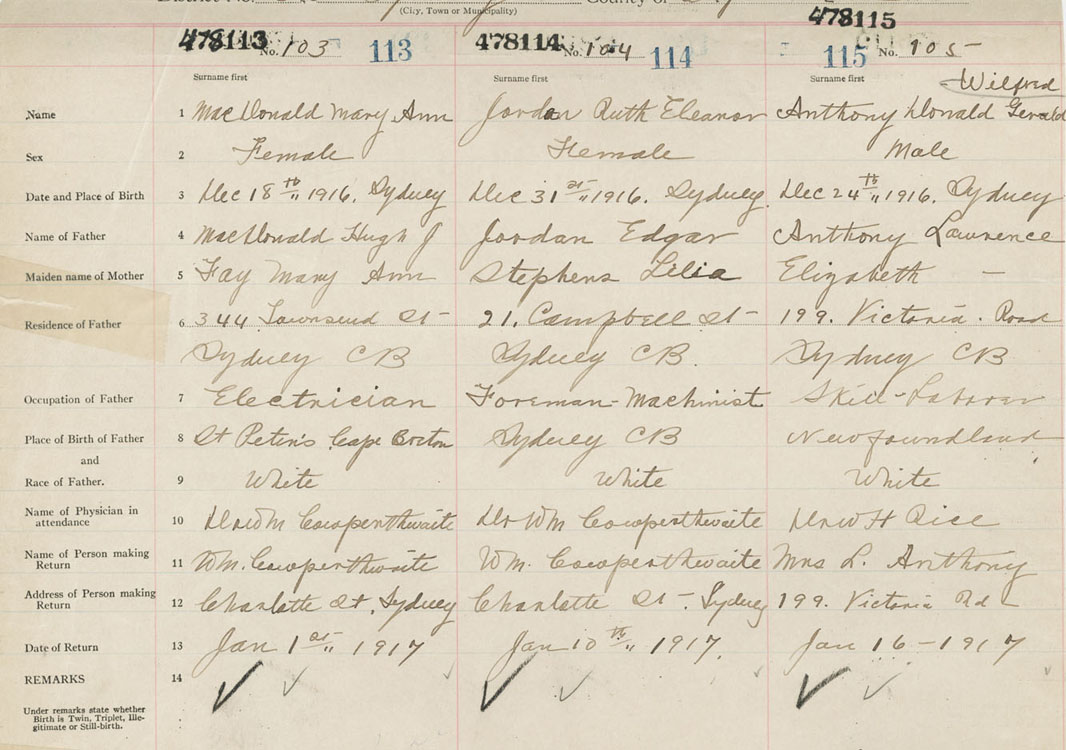 District No. County of
(City, Town or Municipality)
478113 No. 103 113 478114 No. 104 114 478115 115 No. 105
Surname first Surname first Surname first Wilfred
Name 1 MacDonald Mary Ann Jordan Ruth Eleanor Anthony Donald Gerald
Sex 2 Female Female Male
Date and Place of Birth 3 Dec 18th 1916. Sydney Dec 31st 1916. Sydney. Dec 24th 1916. Sydney
Name of Father 4 MacDonald Hugh J Jordan Edgar Anthony Lawrence
Maiden name of Mother 5 Fay Mary Ann Stephens Lilia Elizabeth —
Residence of Father 6 344 Townsend St 21. Campbell St 199. Victoria. Road
Sydney CB Sydney CB. Sydney CB
Occupation of Father 7 Electrician Foreman-Machinist Skill-Laborer
Place of Birth of Father 8 St Peter's Cape Breton Sydney CB Newfoundland
and
Race of Father. 9 White White White
Name of Physician in
attendance 10 Dr Wm Cowperthwaite Dr Wm Cowperthwaite Dr W H Rice
Name of Person making
Return 11 Wm. Cowperthwaite Wm. Cowperthwaite Mrs L. Anthony
Address of Person making
Return 12 Charlotte St, Sydney Charlotte St- Sydney 199. Victoria Rd
Date of Return 13 Jan 1st 1917 Jan 10th 1917. Jan 16-1917
REMARKS 14
Under remarks state whether
Birth is Twin, Triplet, Ille-
gitimate or Still-birth.